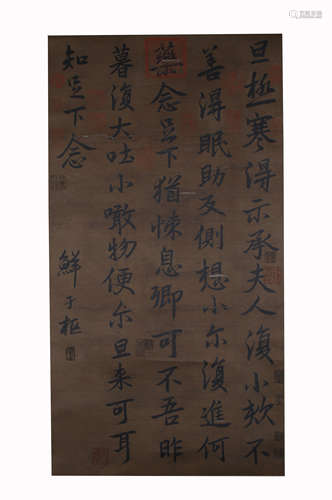 旦極寒得示承夫人復小欬不
善得眠助反側想小尔復進何
藥念足下猶悚息卿可不吾昨
暮復大吐小噉物便尔旦来可耳
知足下念
鮮于樞